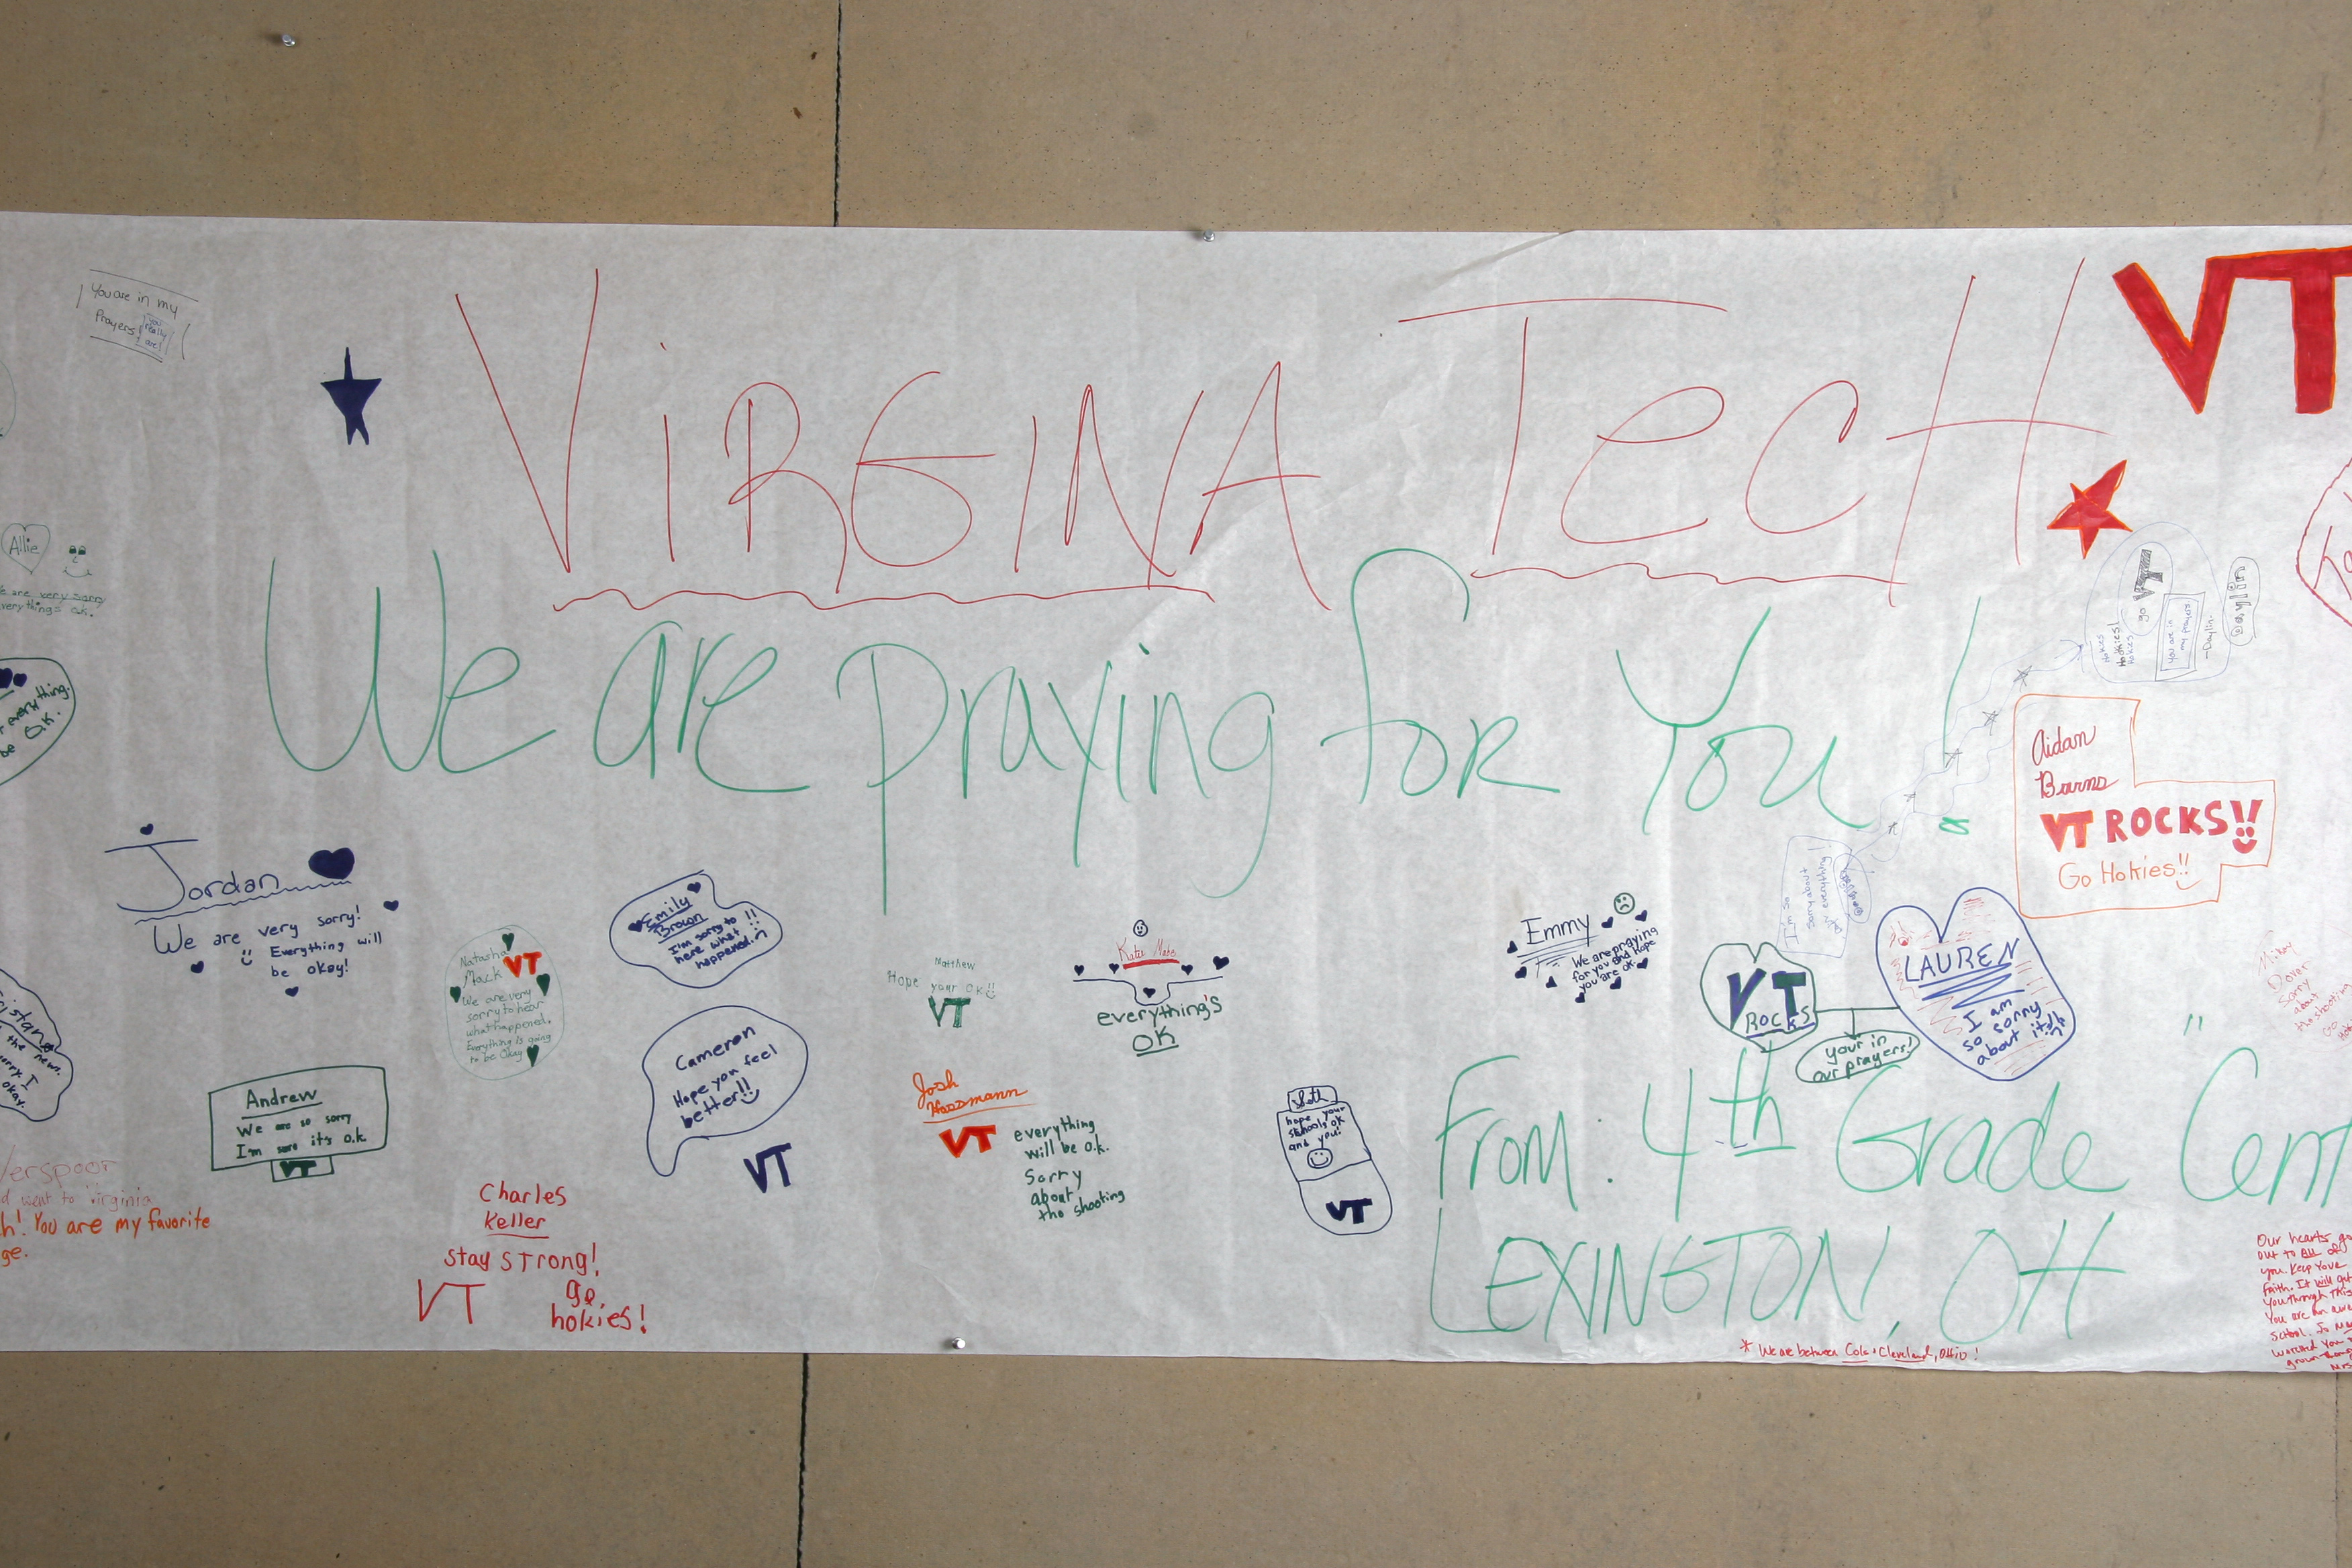 You are in my
Prayers!
you
really
are!
VIRGINA TecH
VT
We are praying for You!
Allie
e are very sorry
verything's o.k.
everything.
be O.K.
go VT
Hokies
Hockies!
Hokies
you are in
my prayers.
-Daylin-
Daylin
Aidan
Barns
VT ROCKS!!
Go Hokies!!
Jordan
We are very sorry!
Everything will
be okay!
Natasha
Mack VT
We are very
sorry to hear
what happened.
Everything is going
to be Okay
Emily
Brown
I'm sorry to
here what
happened.!!
Matthew
Hope your OK!!
VT
Katie
everything's
OK
Emmy
We are praying
for you and hope
you are ok.
I'm so
sorry about
everything!
VT
ROCKS
your in
our prayers!
LAUREN
I am
so sorry
about it!!
Dover
Sorry
about
the shooting
Go
istan
the news.
sorry. I
okay.
Andrew
We are so sorry
I'm sure it's o.k
VT
Cameron
Hope you feel
better!!
VT
Josh
Hossmann
VT
everything
will be o.k.
Sorry
about
the shooting
Seth
hope your
schools ok
and you!
VT
From: 4th Grade "Cent
LEXINGTON, OH
* We are between Cols + Cleveland, Ohio!
erspoor
d went to virginia
h! You are my favorite
ge.
Charles
Keller
stay strong!
VT go
hokies!
Our hearts go
out to ALL of
you. Keep Your
faith. It will get
you through this
You are an awe
school.
watched you
grown
Mrs